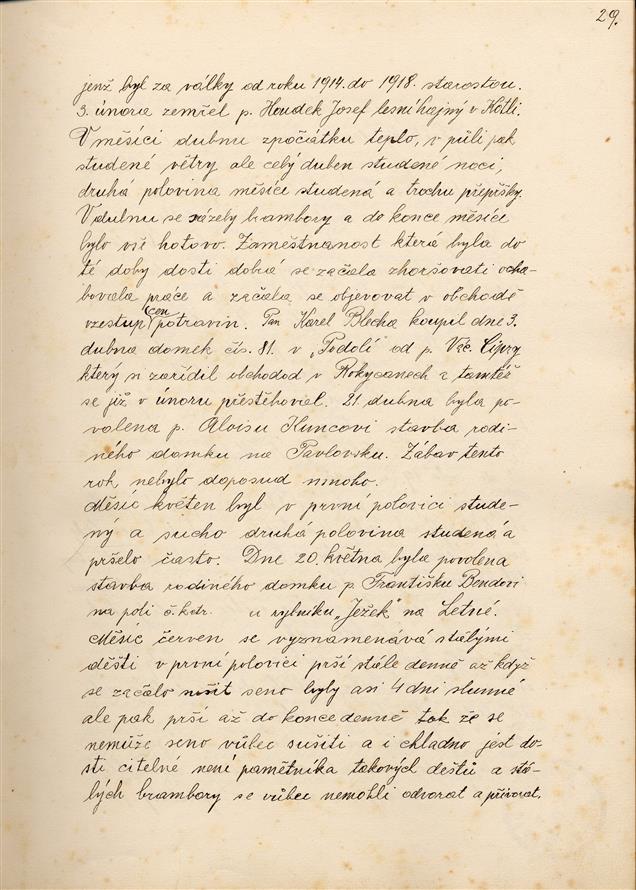 29.
jenž byl za války od roku 1914. do 1918. starostou.
3. února zemřel p. Houdek Josef lesní hajný v Kotli.
V měsíci dubnu zpočiátku teplo, v půli pak
studené větry ale celý duben studené noci,
druhá polovina měsíce studená a trochu přepršky.
V dubnu se sázely brambory a do konce měsíce
bylo vše hotovo. Zaměstnanost která byla do
té doby dosti dobrá se začala zhoršovati ocha-
bovala práce a začala se objevovat v obchodě
vzestup cen potravin. Pan Karel Blecha koupil dne 3.
dubna domek čís. 81. v „Podolí" od p. Vác. Cipry
který si zařídil obchod v Rokycanech a tamtéž
se již v únoru přestěhoval. 21. dubna byla po-
volena p. Aloisu Kuncovi stavba rodi-
ného domku na Pavlovsku. Zábav tento
rok nebylo doposud mnoho.
Měsíc květen byl v první polovici stude-
ný a sucho druhá polovina studená a
pršelo často. Dne 20. května byla povolena
stavba rodiného domku p. Františku Bendovi
na poli č. kdr. u rybníku „Ježek" na Letné.
Měsíc červen se vyznamenává stálými
děšti v první polovici prší stále denně až když
se začalo nosit seno byly asi 4 dni slunné
ale pak prší až do konce denně tak že se
nemůže seno vůbec sušiti a i chladno jest do-
sti citelné není pamětníka takových deštů a stá-
lých brambory se vůbec nemohli odvorat a přivorat.